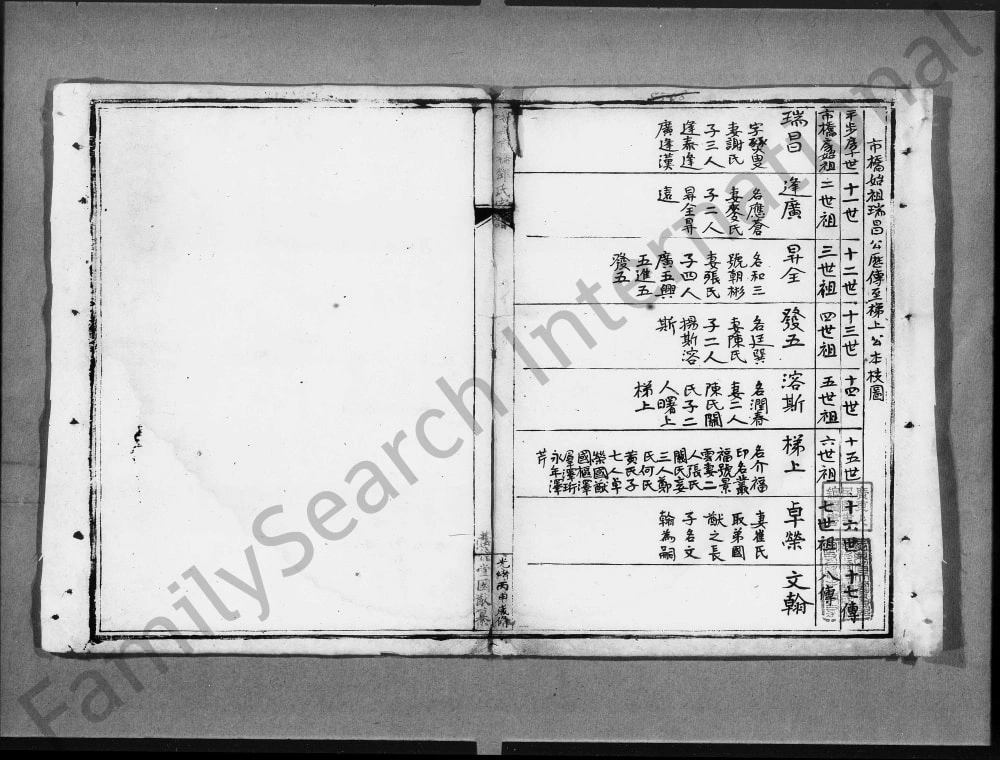 市橋始祖瑞昌公歷傳至梯上公本枝圖
十一世
十二世
十三世
十四世
十五世
十六世
十七傳
市橋房始祖
二世祖
三世祖
四世祖
五世祖
六世祖
七世祖
八傳
瑞昌
妻謝氏
子三人
逢泰逢
廣逢漢
逢廣
名應蒼
妻麥氏
子二人
昇全昇
遠
昇全
名和三
號朝彬
妻張氏
子四人
廣五興
五進五
發五
發五
名廷巽
妻陳氏
子二人
揚斯溶
斯
溶斯
名潤春
妻二人
陳氏關
氏子二
人曙上
梯上
梯上
名介福
印名叢
福號景
雲妻二
人張氏
關氏妾
三人鄭
氏何氏
黃氏子
七人卓
榮國猷
國樞澤
澤珩
永年澤
芹
卓榮
妻崔氏
取弟國
猷之長
子名文
翰為嗣
文翰
光緒丙申歲修
FamilySearch International